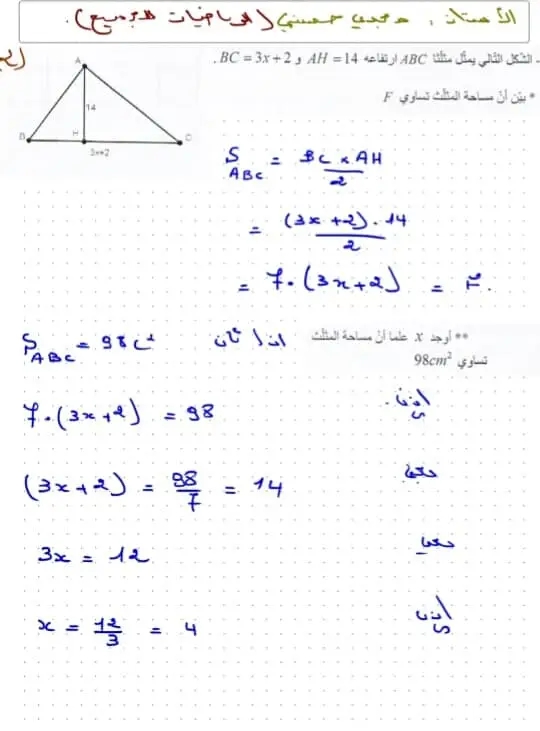 الأستاذ: مجدي حسني (الرياضيات للجميع).
- الشكل التالي يمثل مثلثا ABC ارتفاعه AH = 14 و BC = 3x + 2 .
* بيّن أنّ مساحة المثلث تساوي F
A
14
B H C
3x+2
S_ABC = BC × AH / 2
= (3x + 2) · 14 / 2
= 7 · (3x + 2) = F.
** أوجد x علما أنّ مساحة المثلث
تساوي 98cm²
اذا كان
7 · (3x + 2) = 98
إذن.
(3x + 2) = 98/7 = 14
يعني
3x = 12
يعني
x = 12/3 = 4
إذن